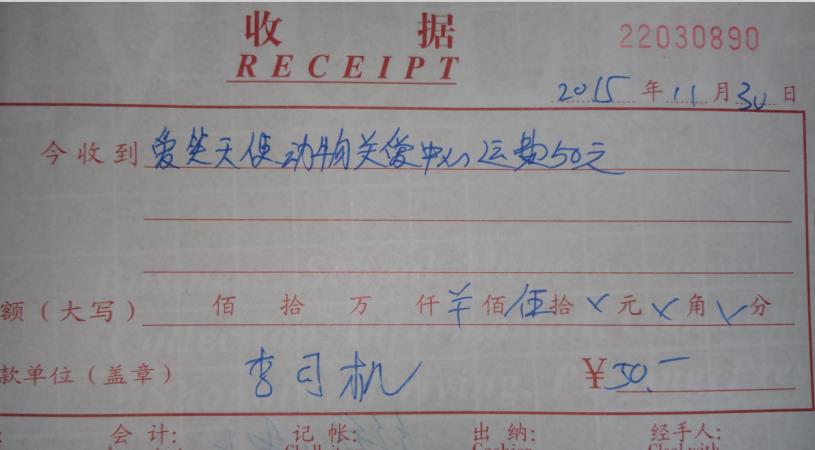 收 据 22030890
RECEIPT
2015 年 11 月 30 日
今收到 爱笑天使动物关爱中心运费50元
额（大写） 佰 拾 万 仟 ¥ 佰 伍 拾 × 元 × 角 × 分
款单位（盖章） 李司机 ¥50.—
会 计: 记 帐: 出 纳: 经手人: